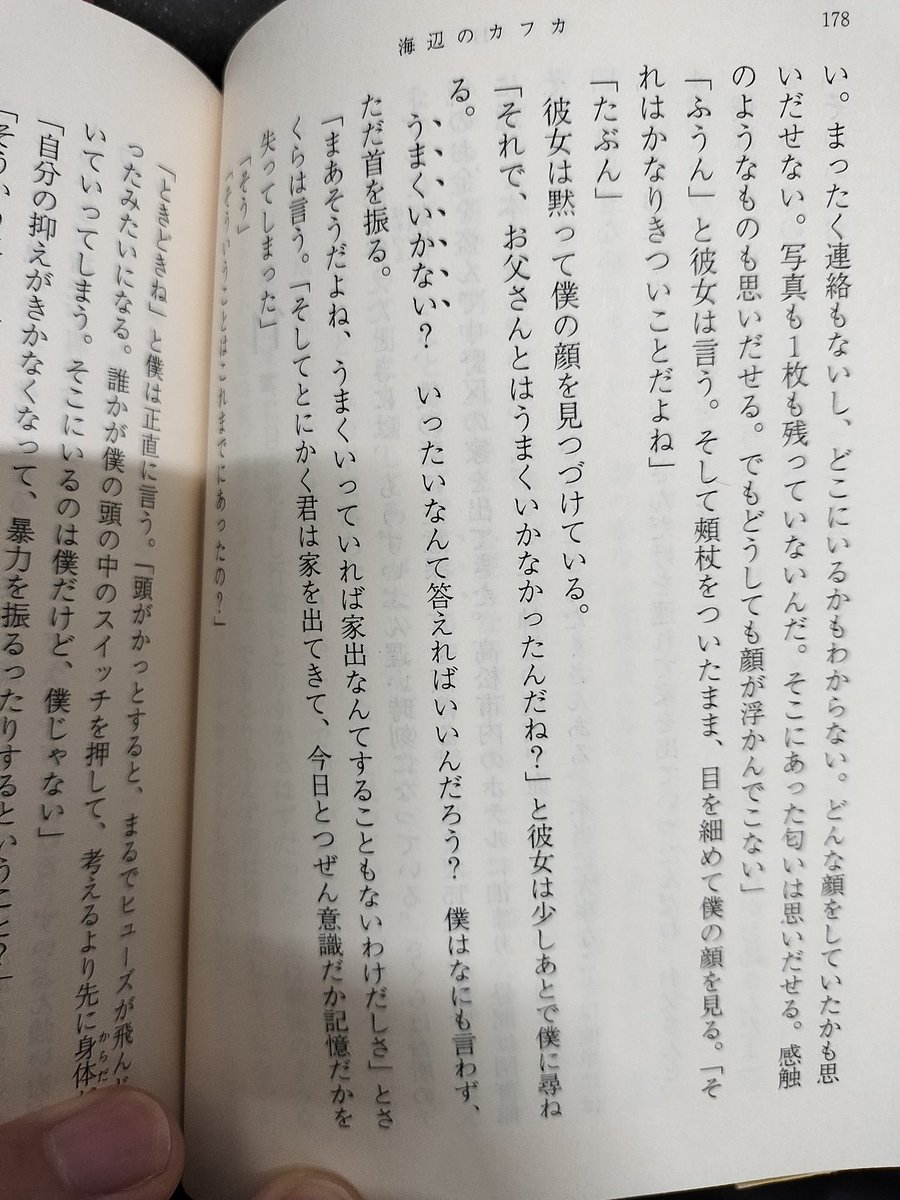 178
海辺のカフカ
い。まったく連絡もないし、どこにいるかもわからない。どんな顔をしていたかも思
いだせない。写真も1枚も残っていないんだ。そこにあった匂いは思いだせる。感触
のようなものも思いだせる。でもどうしても顔が浮かんでこない」
「ふうん」と彼女は言う。そして頰杖をついたまま、目を細めて僕の顔を見る。「そ
れはかなりきついことだよね」
「たぶん」
彼女は黙って僕の顔を見つづけている。
「それで、お父さんとはうまくいかなかったんだね?」と彼女は少しあとで僕に尋ね
る。
うまくいかない? いったいなんて答えればいいんだろう? 僕はなにも言わず、
ただ首を振る。
「まあそうだよね、うまくいっていれば家出なんてすることもないわけだしさ」とさ
くらは言う。「そしてとにかく君は家を出てきて、今日とつぜん意識だか記憶だかを
失ってしまった」
「そう」
「そういうことはこれまでにあったの?」
「ときどきね」と僕は正直に言う。「頭がかっとすると、まるでヒューズが飛んじ
ったみたいになる。誰かが僕の頭の中のスイッチを押して、考えるより先に身体
いていってしまう。そこにいるのは僕だけど、僕じゃない」
「自分の抑えがきかなくなって、暴力を振るったりするということ?」